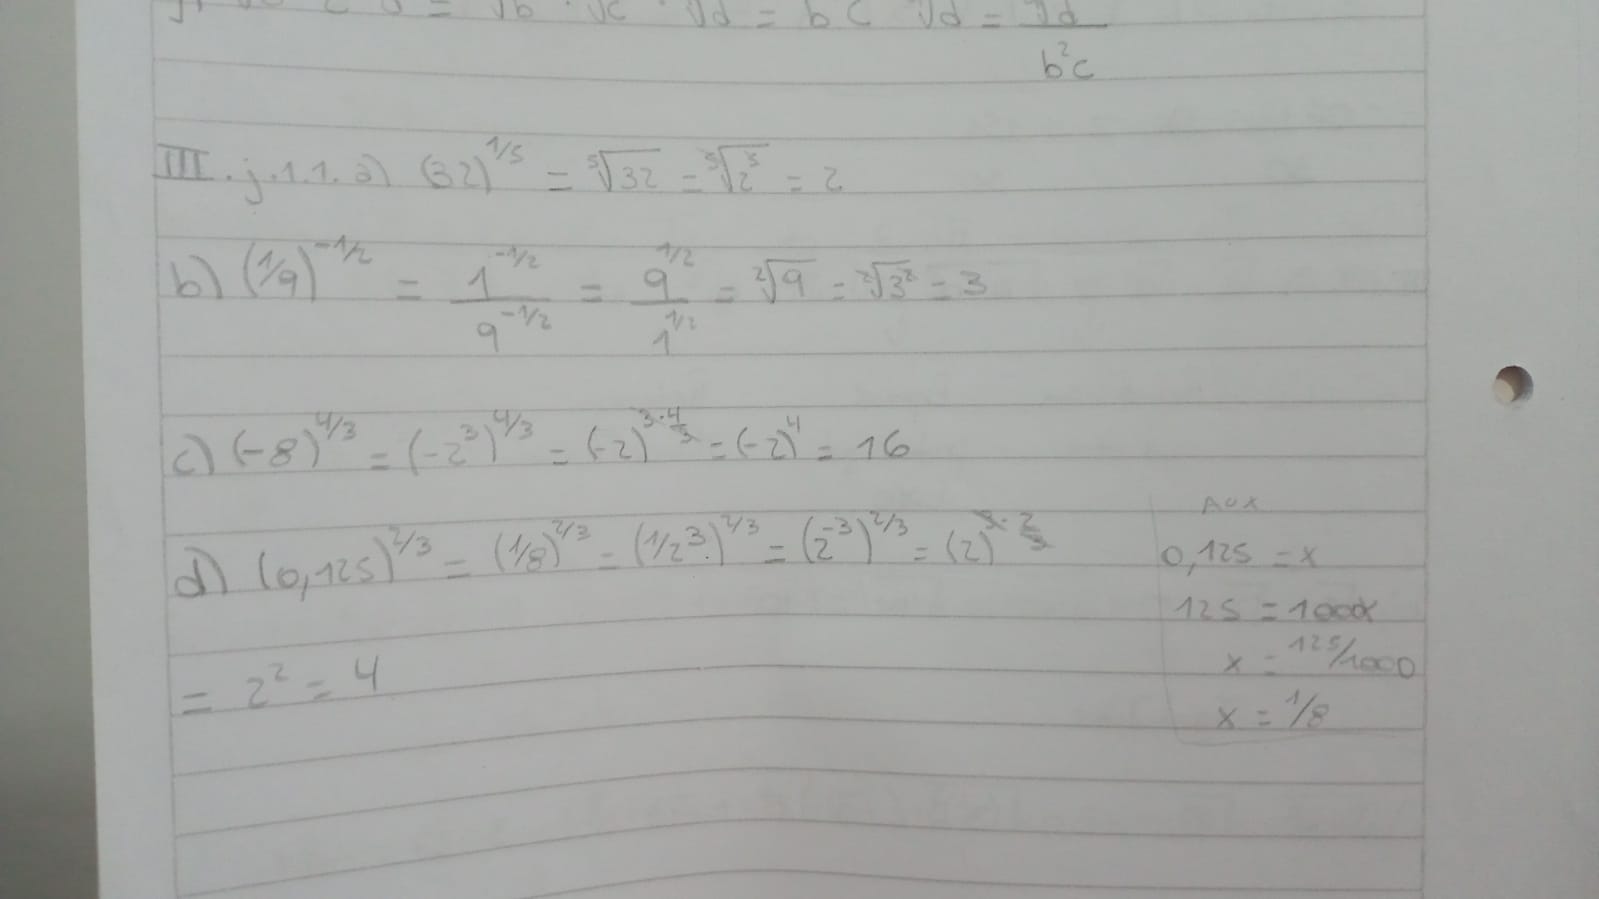 = √b · √c · √d = b c √d = √d
b²c
III.j.1.1.a) (32)^1/5 = ⁵√32 = ⁵√2⁵ = 2
b) (1/9)^-1/2 = 1^-1/2 / 9^-1/2 = 9^1/2 / 1^1/2 = ²√9 = ²√3² = 3
c) (-8)^4/3 = (-2³)^4/3 = (-2)^3·4/3 = (-2)⁴ = 16
d) (0,125)^2/3 = (1/8)^2/3 = (1/2³)^2/3 = (2^-3)^2/3 = (2)^3·2/3
= 2² = 4
AUX
0,125 = x
125 = 1000x
x = 125/1000
x = 1/8